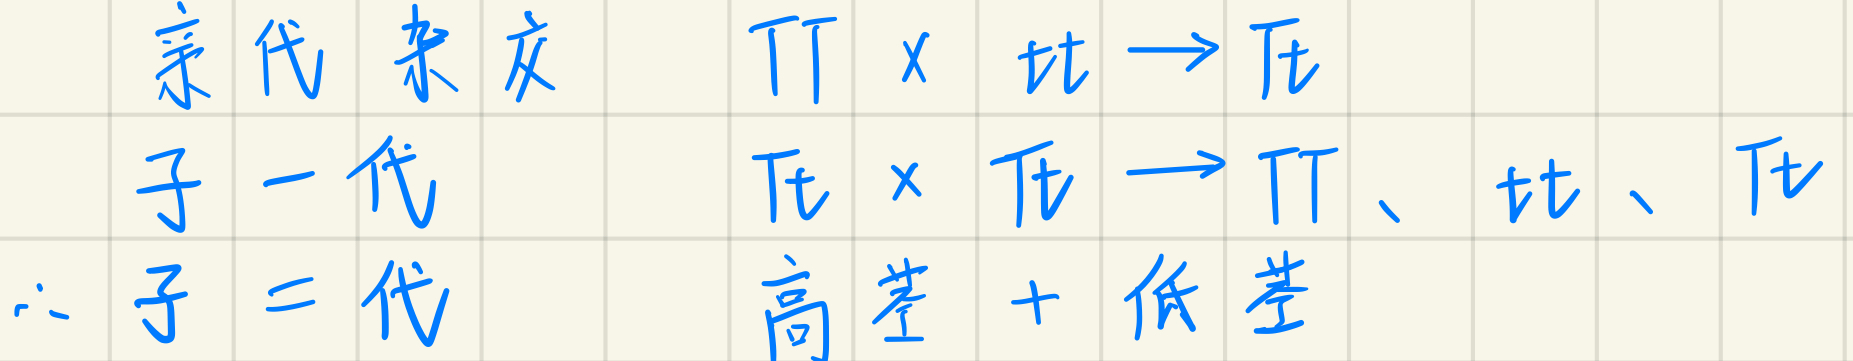 亲代杂交 TT × tt → Tt
子一代 Tt × Tt → TT、tt、Tt
∴ 子二代 高茎 + 低茎